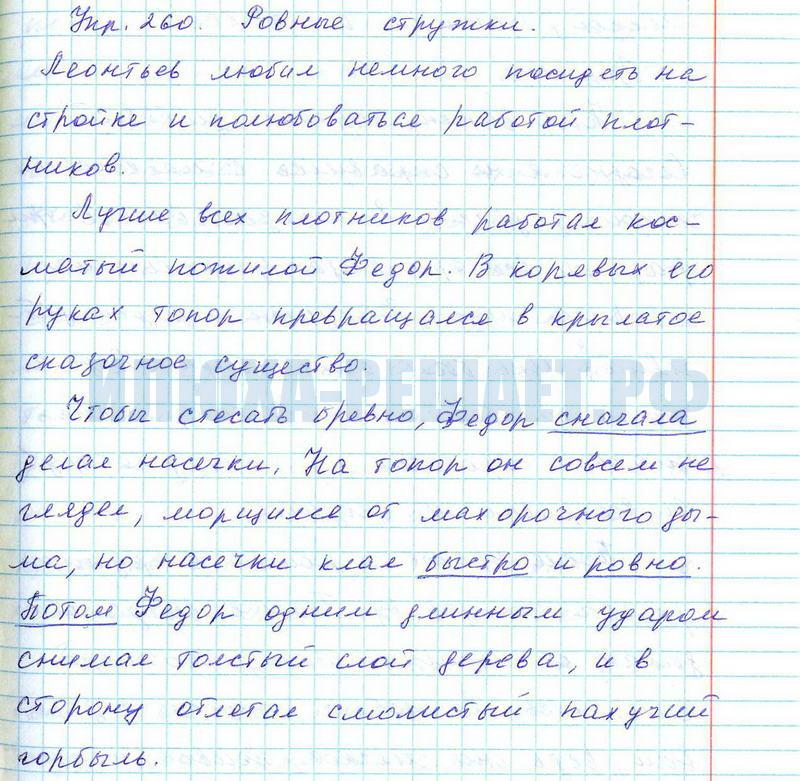 Упр. 260. Ровные стружки.
Леонтьев любил немного посидеть на
стройке и полюбоваться работой плот-
ников.
Лучше всех плотников работал кос-
матый пожилой Федор. В корявых его
руках топор превращался в крылатое
сказочное существо.
ИЛЮХА-РЕШАЕТ.РФ
Чтобы стесать бревно, Федор сначала
делал насечки. На топор он совсем не
глядел, морщился от махорочного ды-
ма, но насечки клал быстро и ровно.
Потом Федор одним длинным ударом
снимал толстый слой дерева, и в
сторону отлетал смолистый пахучий
горбыль.